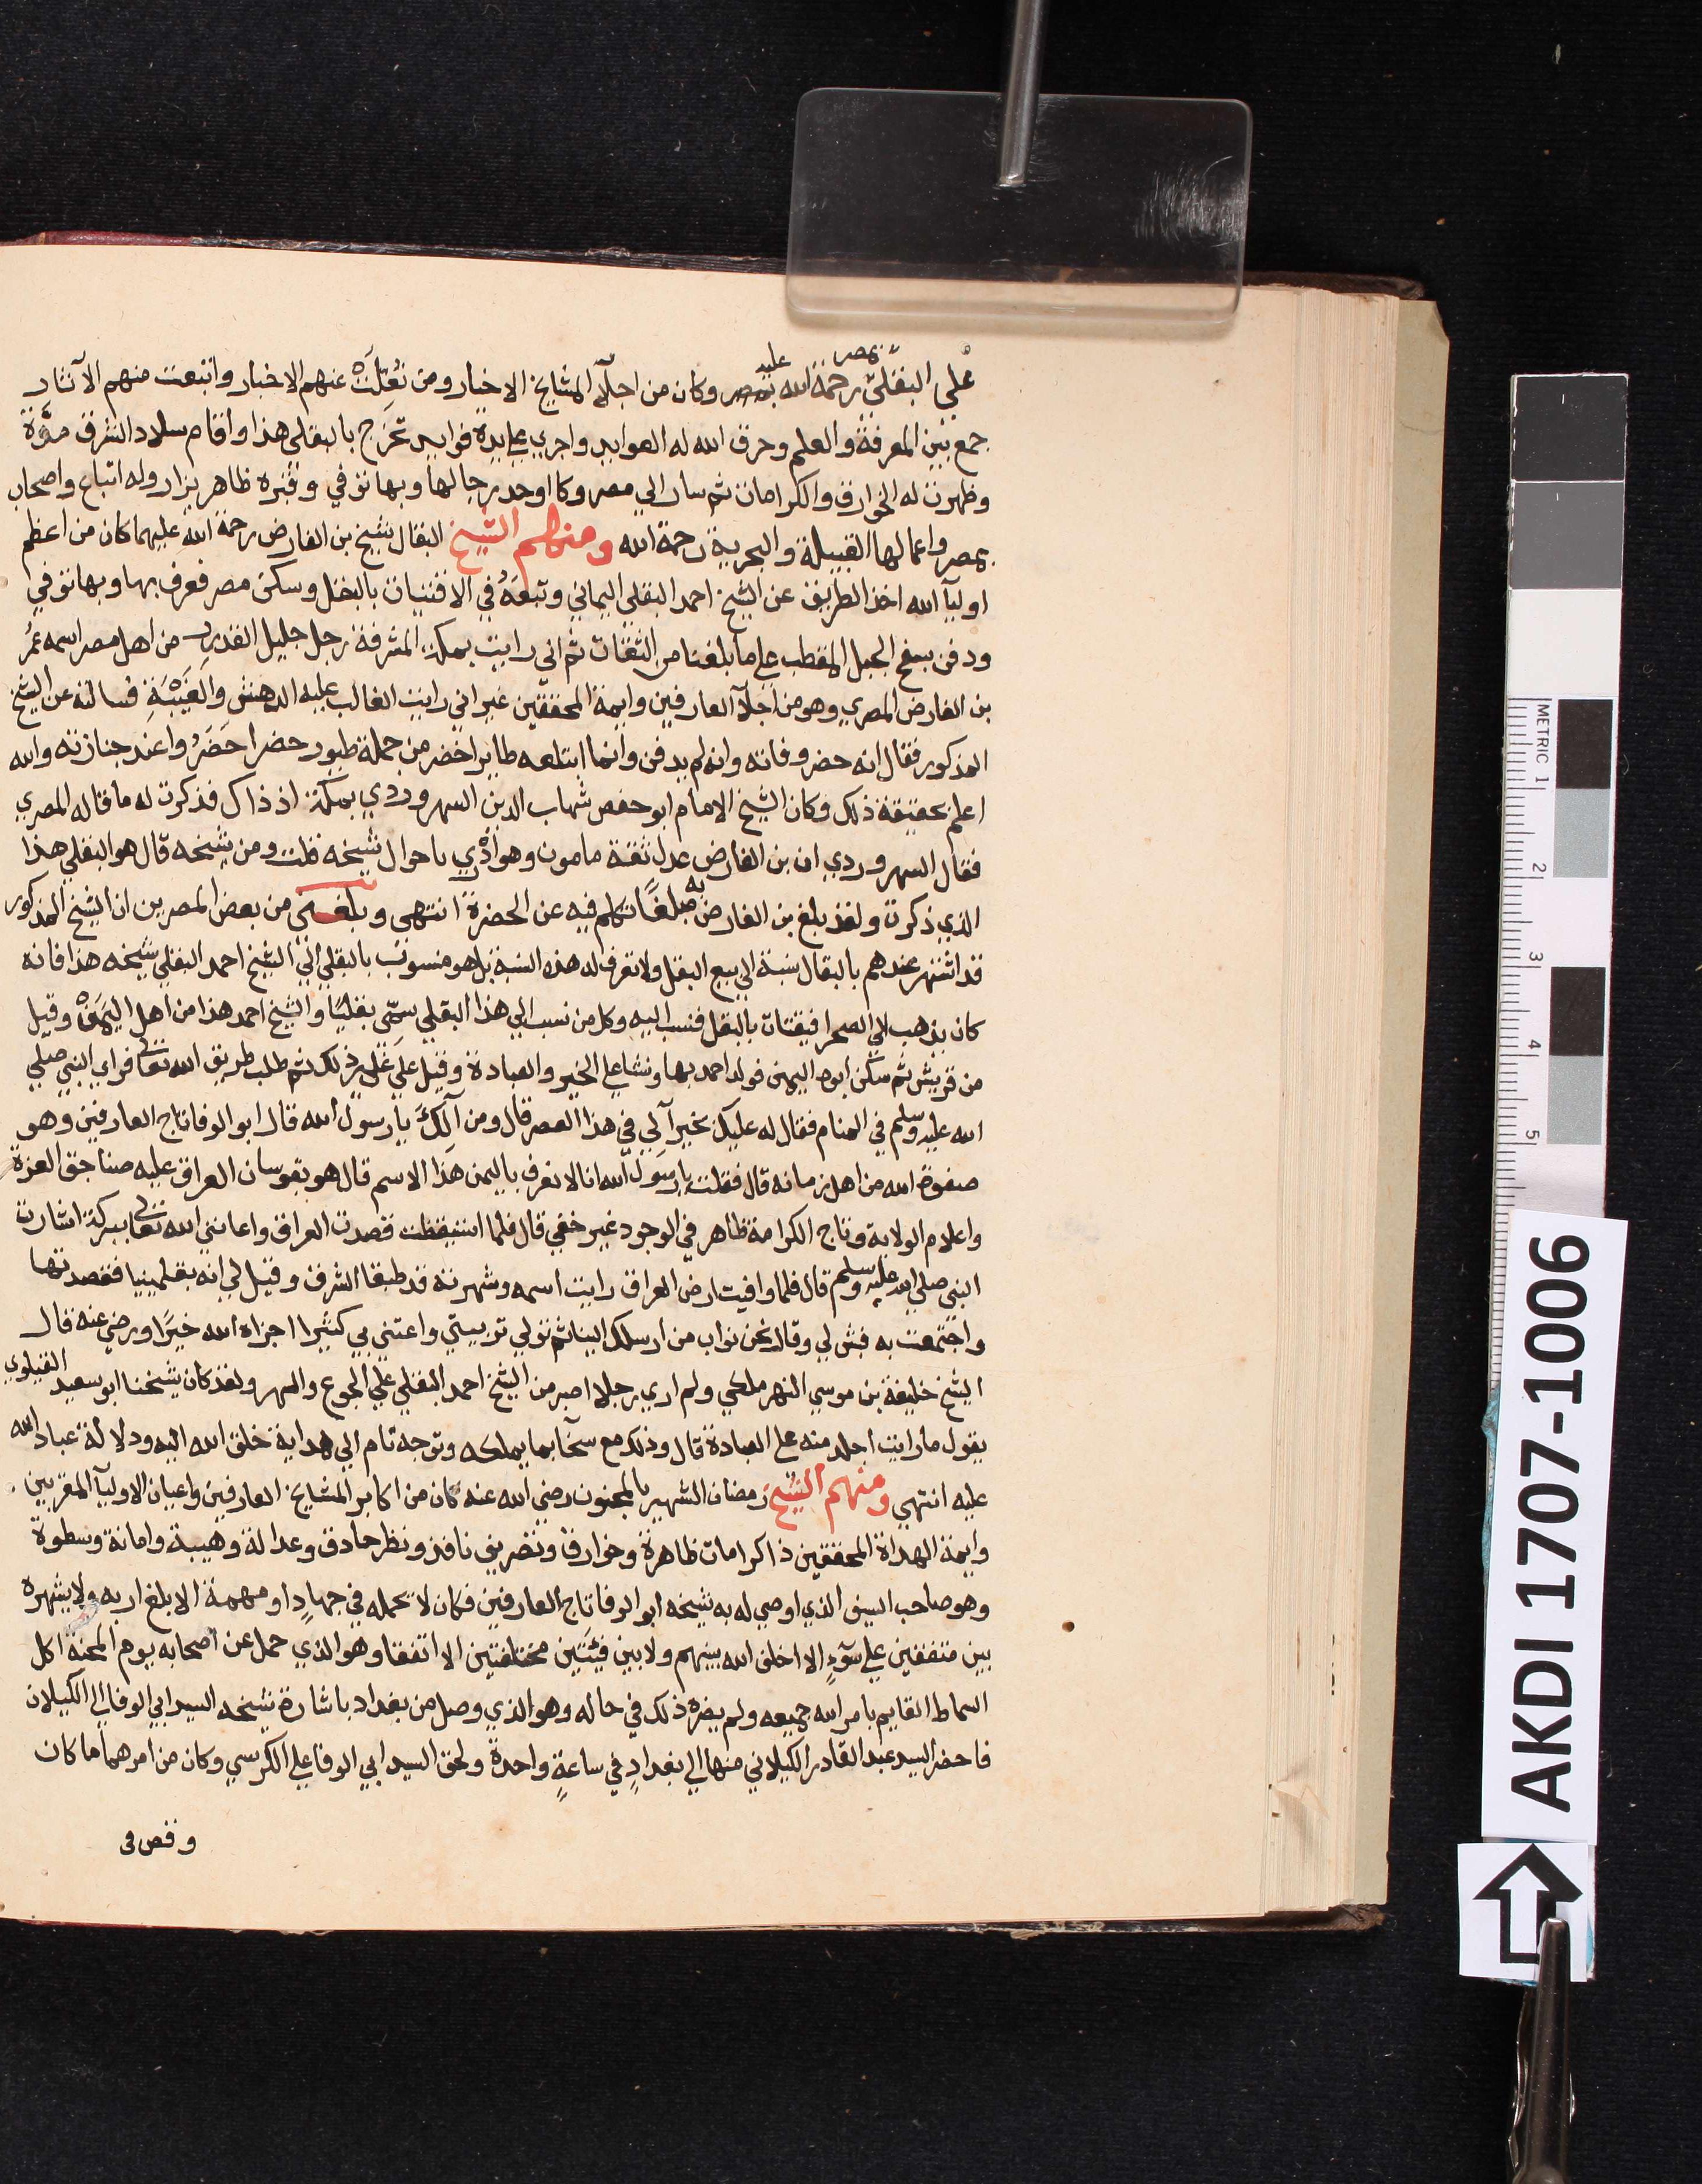 علي البقلي رحمة الله عليه بمصر وكان من اجلآء المشايخ الاخيار ومن نقلت عنهم الاخبار واتبعت منهم الآثار
جمع بين المعرفة والعلم وخرق الله له العوايد واجري علي يده فوايد تخرج بالبقلي هذا واقام ببلاد الشرق مدة
وظهرت له الخوارق والكرامات ثم سار الي مصر وكا اوحد رجالها وبها توفي وقبره ظاهر يزار وله اتباع واصحاب
بمصر واعمالها القبيلة والبحرية رحمة الله ومنهم الشيخ البقال شيخ بن الفارض رحمة الله عليهما كان من اعظم
اوليآ الله اخذ الطريق عن الشيخ احمد البقلي اليماني وتبعه في الاقتيات بالبقل وسكن مصر فعرف بها وبها توفي
ودفن بسفح الجبل المقطب علي ما بلغنا من الثقات ثم اني رايت بمكة المشرفة رجل جليل القدر من اهل مصر اسمه عمر
بن الفارض المصري وهو من اجلآ العارفين وايمة المحققين غير اني رايت الغالب عليه الدهش والغيبة فسالته عن الشيخ
المذكور فقال انه حضر وفاته وانه لم يدفن وانما ابتلعه طاير اخضر من جملة طيور خضر احضروا عند جنازته والله
اعلم بحقيقة ذلك وكان الشيخ الامام ابو حفص شهاب الدين السهروردي بمكة اذ ذاك فذكرت له ما قاله المصري
فقال السهروردي ان بن الفارض عدل ثقة مامون وهو ادري باحوال شيخه قلت ومن شيخه قال هو البقلي هذا
الذي ذكرت ولقد بلغ بن الفارض به مبلغا تكلم فيه عن الحضرة انتهي وبلغني من بعض المصريين ان الشيخ المذكور
قد اشتهر عندهم بالبقال نسبة الي بيع البقل ولا تعرف له هذه النسبة بل هو منسوب بالبقلي الي الشيخ احمد البقلي شيخه هذا فانه
كان يذهب الي الصحرا فيقتات بالبقل فنسب اليه وكل من نسب الي هذا البقلي سمي بقليا والشيخ احمد هذا من اهل اليمن وقيل
من قريش ثم سكن ابوه اليمن فولد احمد بها ونشا علي الخير والعبادة وقيل علي غير ذلك ثم طلب طريق الله تعالى فراي النبي صلي
الله عليه وسلم في المنام فقال له عليك بخير آلي في هذا العصر قال ومن آلك يا رسول الله قال ابو الوفا تاج العارفين وهو
صفوة الله من اهل زمانه قال فقلت يا رسول الله انا لا نعرف باليمن هذا الاسم قال هو بقوسان العراق عليه صناجق العزة
واعلام الولاية وتاج الكرامة ظاهر في الوجود غير خفي قال فلما استيقظت قصدت العراق واعانني الله تعالى ببركة اشارت
النبي صلي الله عليه وسلم قال فلما وافيت ارض العراق رايت اسمه وشهرته قد طبقا الشرق وقيل لي انه بقلمينيا فقصدتها
واجتمعت به فبش لي وقال نحن نواب من ارسلك الينا ثم تولي تربيتي واعتني بي كثيرا اجزاه الله خيرا ورضي عنه قال
الشيخ خليفة بن موسي النهر ملكي ولم اري رجلا اصبر من الشيخ احمد البقلي علي الجوع والسهر ولقد كان شيخنا ابو سعيد القيلوي
يقول ما رايت اجلد منه علي العبادة قال وذلك مع سخآ بما يملكه وتوجه تام الي هداية خلق الله اليه ودلالة عباد الله
عليه انتهي ومنهم الشيخ رمضان الشهير بالمجنون رضي الله عنه كان من اكابر المشايخ العارفين واعيان الاوليآ المقربين
وايمة الهداة المحققين ذا كرامات ظاهرة وخوارق وتصريف نافذ ونظر حادق وعدالة وهيبة وامانة وسطوة
وهو صاحب السيف الذي اوصي له به شيخه ابو الوفا تاج العارفين فكان لا يحمله في جهاد او مهمة الا بلغ اربه ولا يشهره
بين متفقين علي سوء الا اخلف الله بينهم ولا بين فيتين مختلفتين الا اتفقا وهو الذي حمل عن اصحابه يوم المحنة اكل
السماط القايم بامر الله جميعه ولم يضره ذلك في حاله وهو الذي وصل من بغداد باشارة شيخه السيد ابي الوفا الي الكيلان
فاحضر السيد عبد القادر الكيلاني منها الي بغداد في ساعة واحدة ولحق السيد ابي الوفا علي الكرسي وكان من امرهما ما كان
وقص